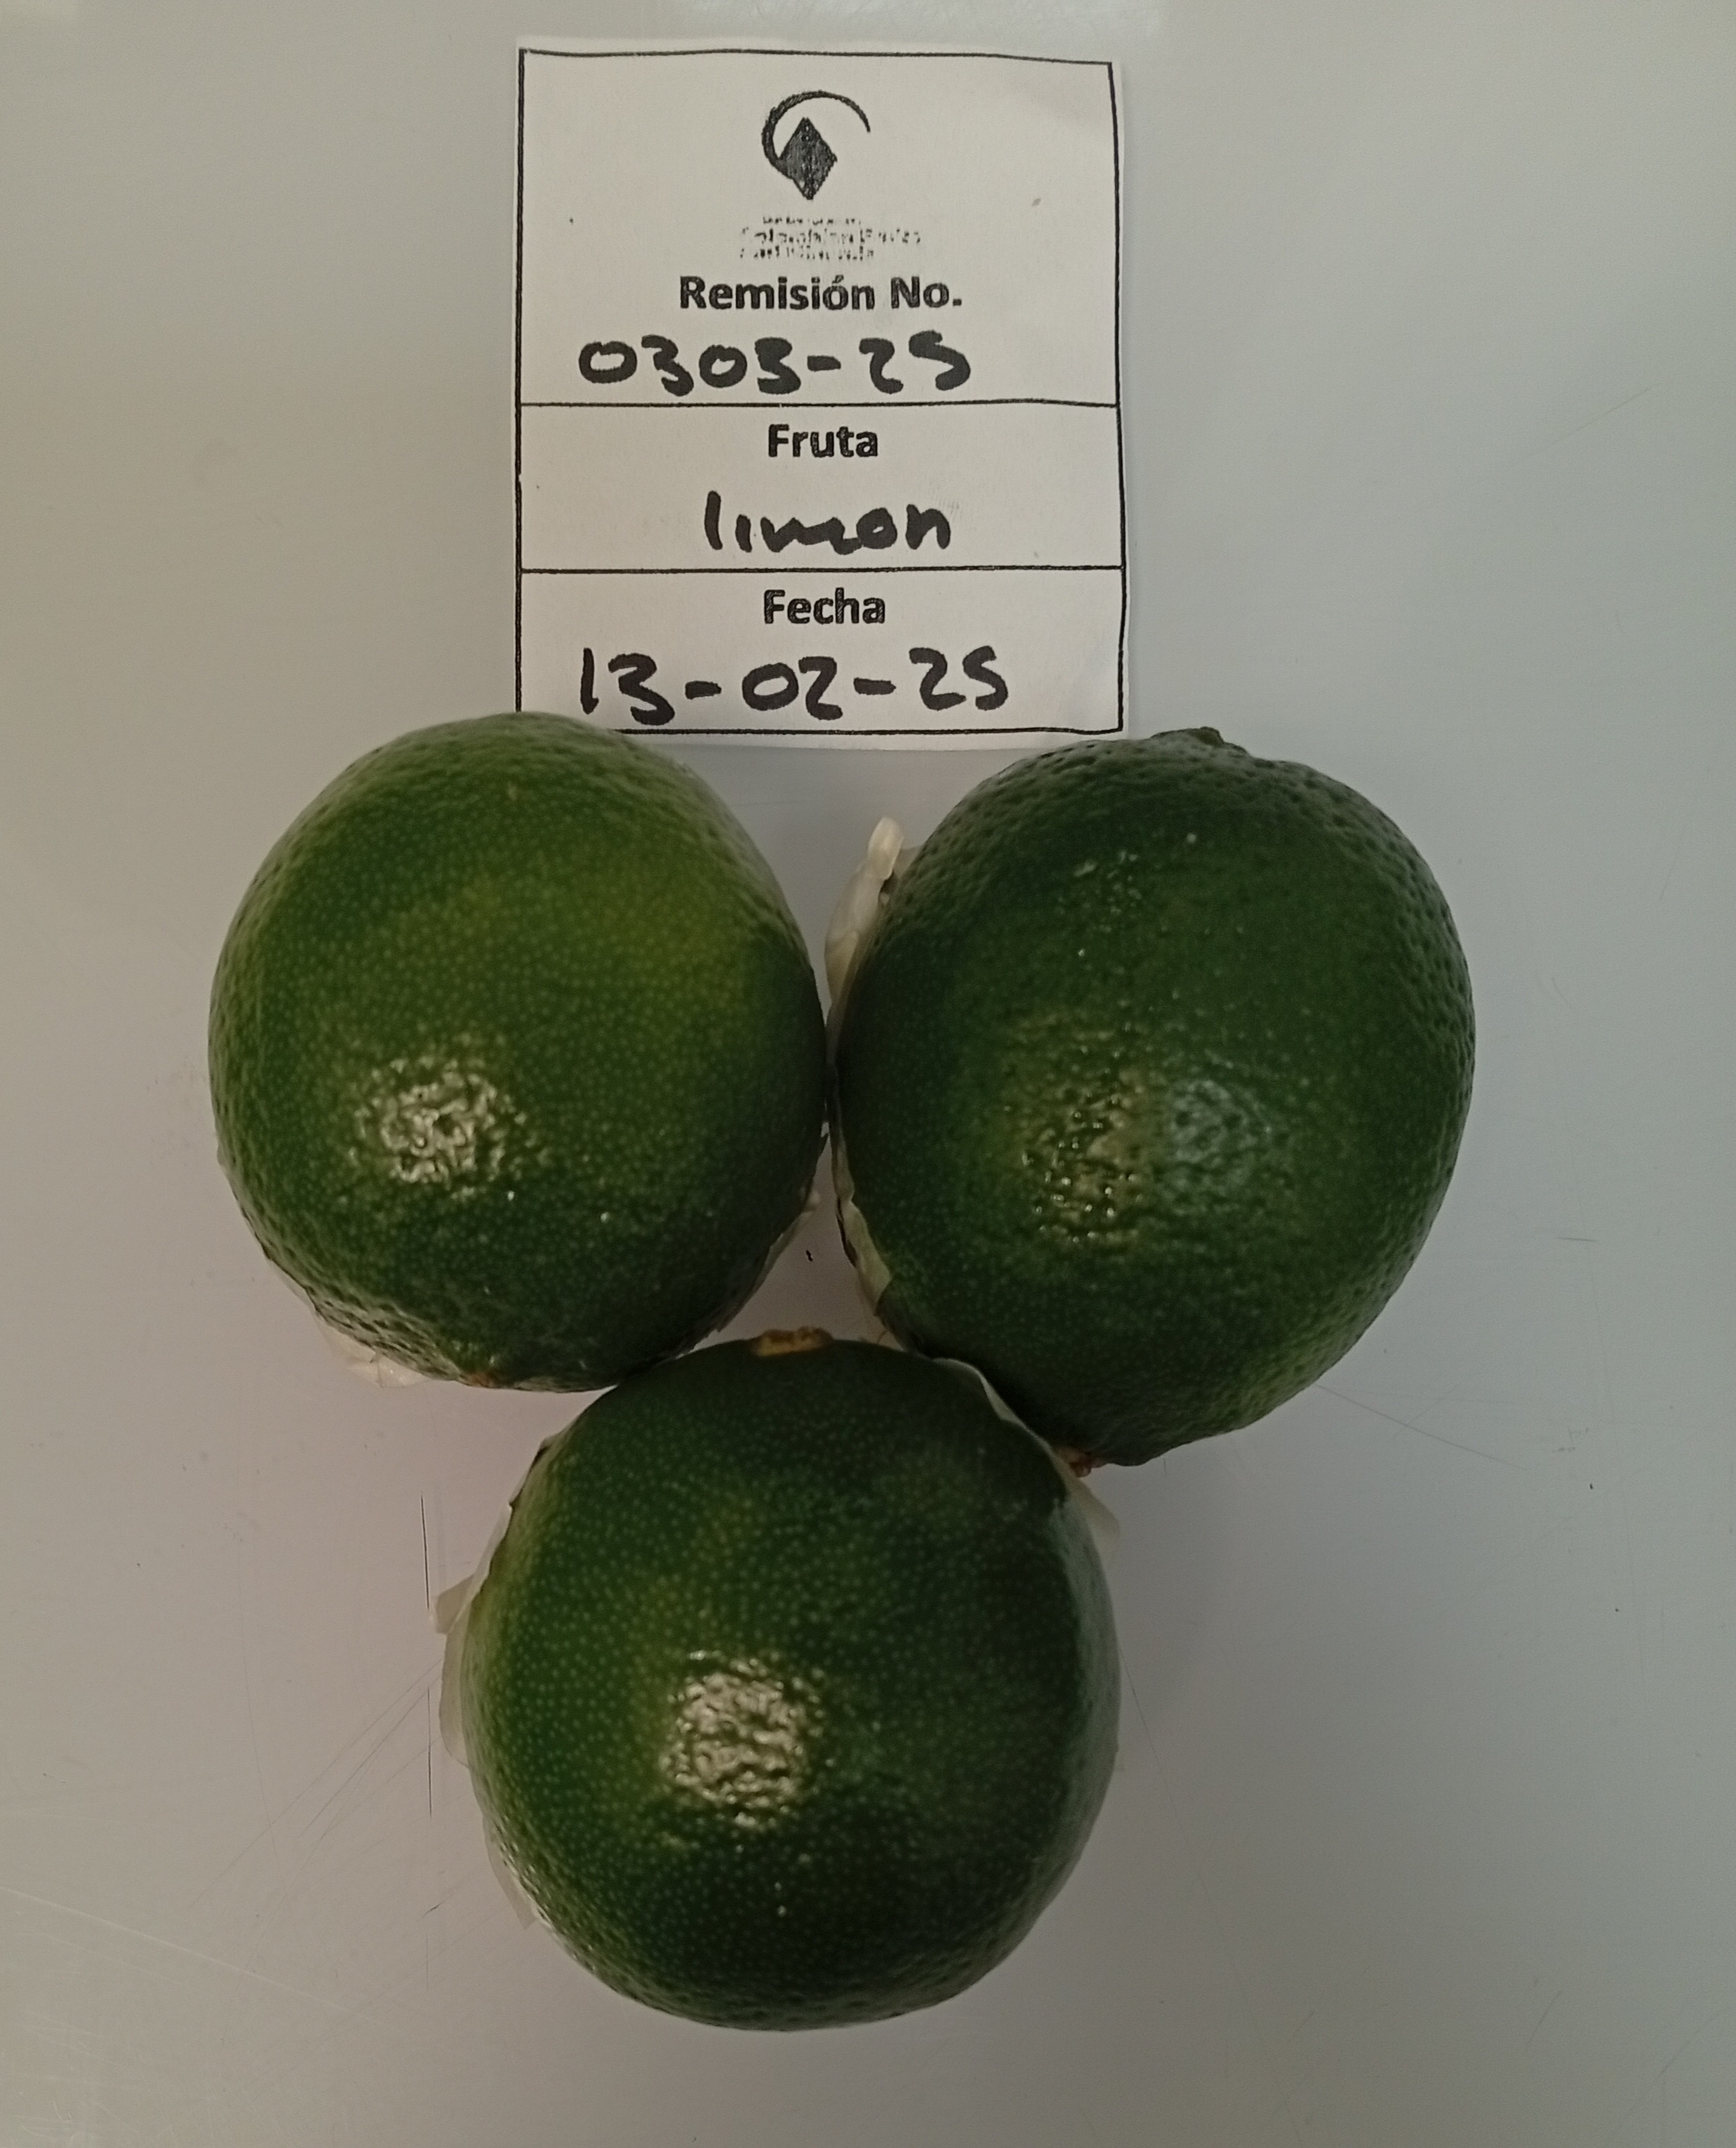 Remisión No.
0303-25
Fruta
limon
Fecha
13-02-25